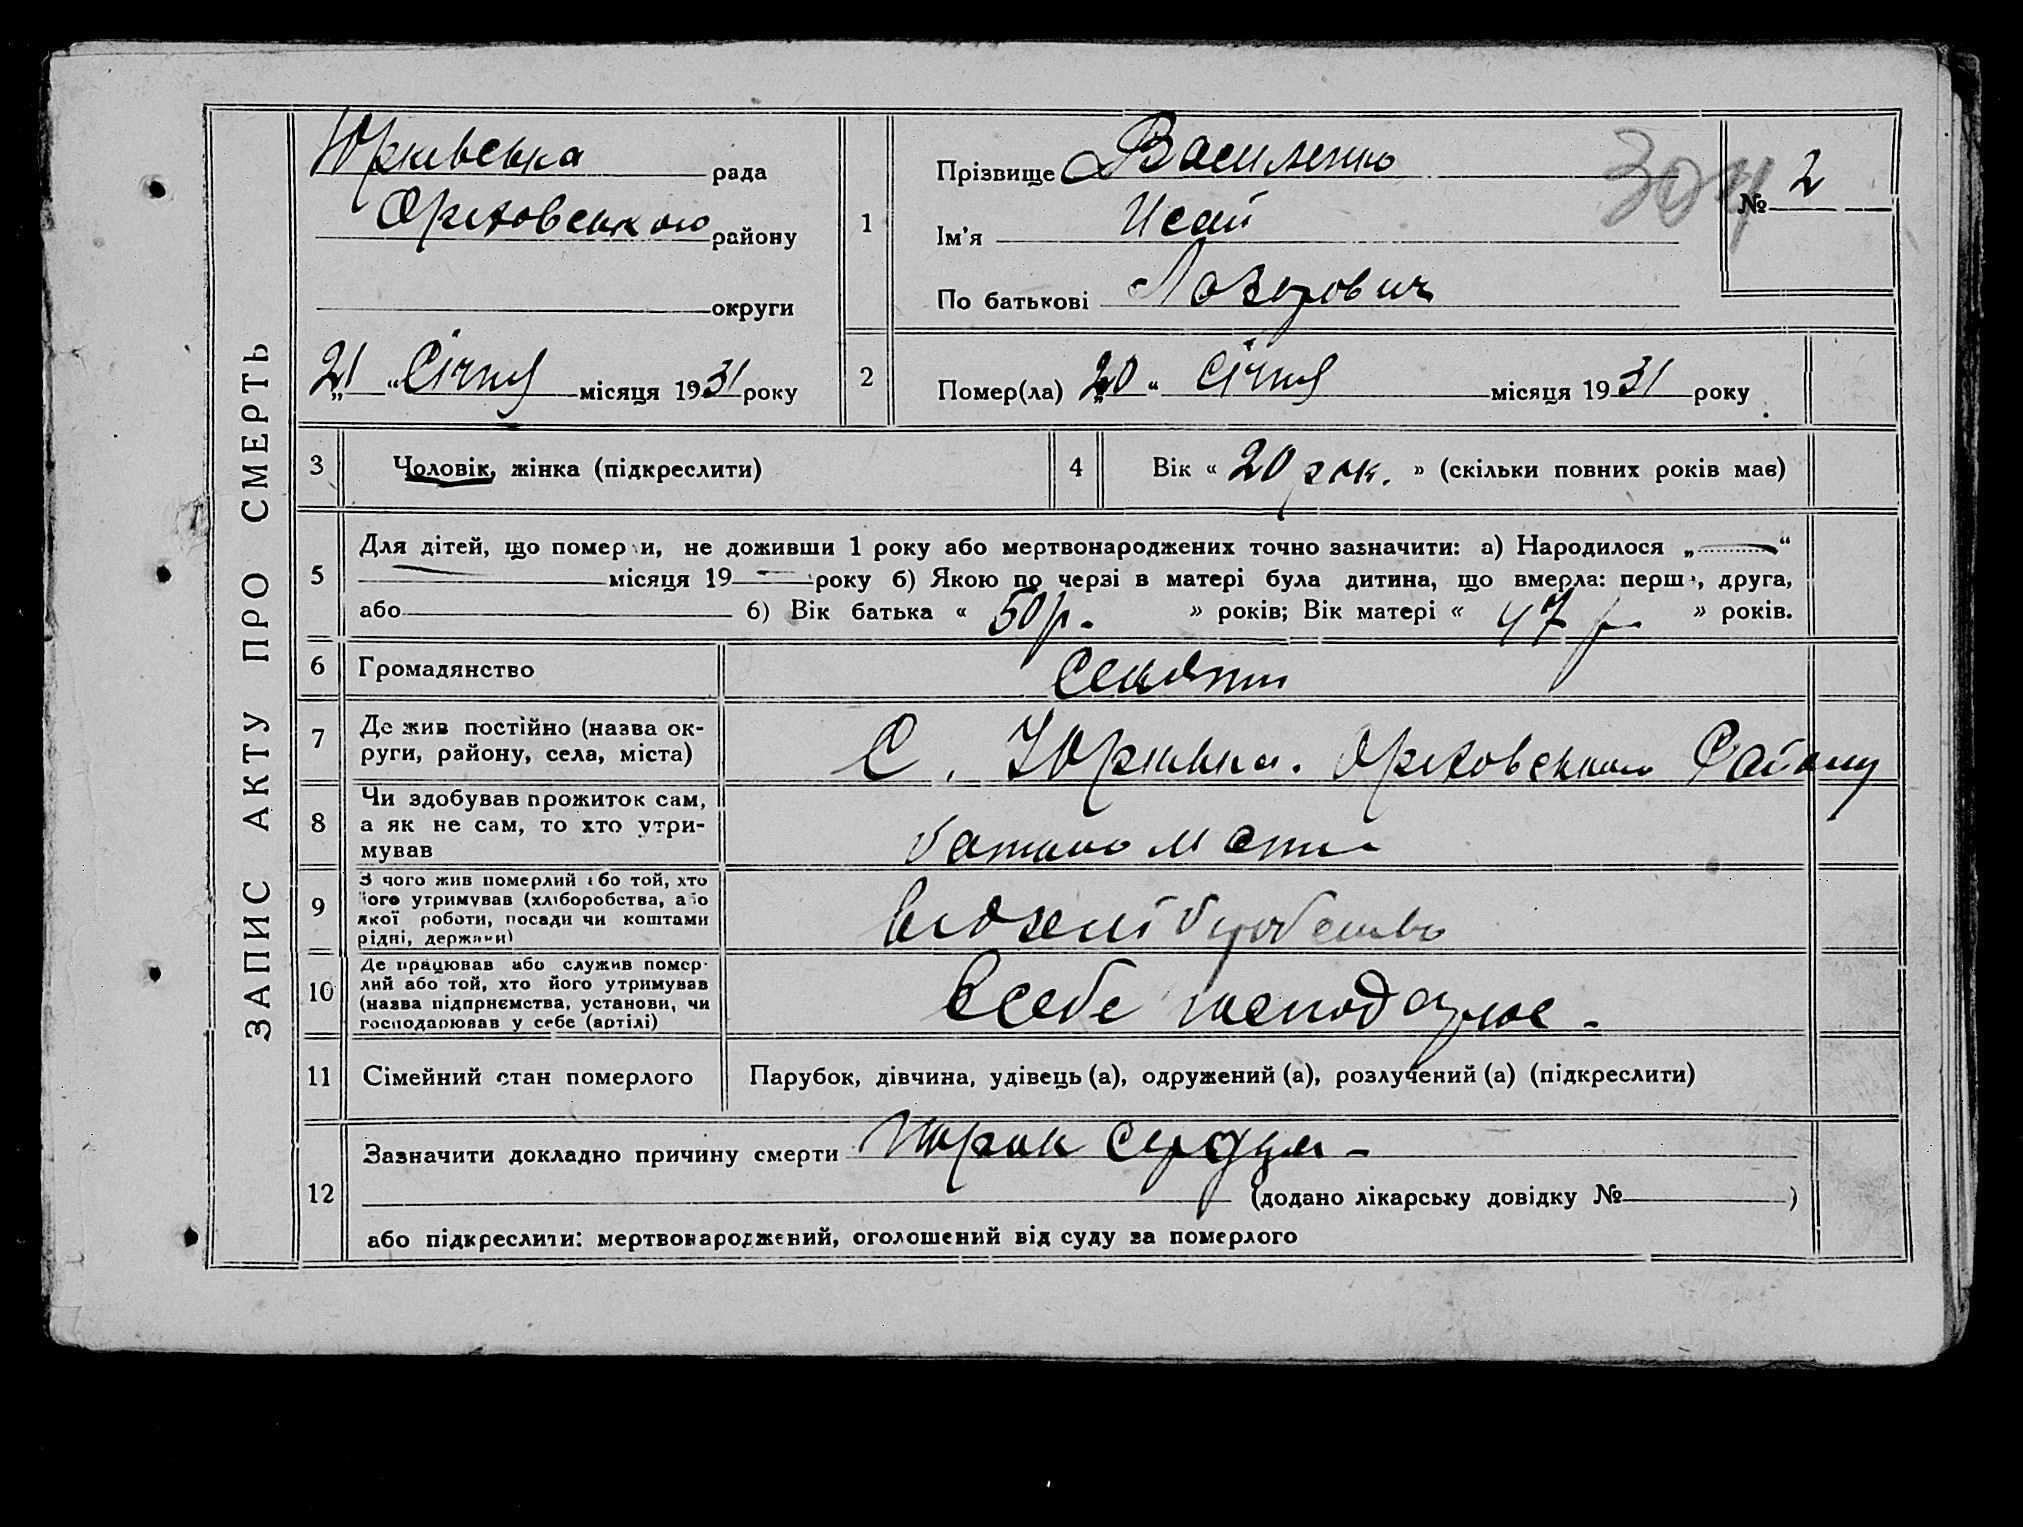 ЗАПИС АКТУ ПРО СМЕРТЬ
Юркивська рада
Ореховського району
округи
„21“ Січня місяця 1931 року
1
Прізвище Василенко
Ім'я Исай
По батькові Лазерович
304
№ 2
2
Помер(ла) „20“ Січня місяця 1931 року
3
Чоловік, жінка (підкреслити)
4
Вік « 20 рок. » (скільки повних років має)
5
Для дітей, що померли, не доживши 1 року або мертвонароджених точно зазначити: а) Народилося „ “
місяця 19 року б) Якою по черзі в матері була дитина, що вмерла: перша, друга,
або б) Вік батька « 50 р. » років; Вік матері « 47 р. » років.
6
Громадянство
Селяни
7
Де жив постійно (назва ок-
руги, району, села, міста)
С. Юркивка. Ореховського Району
8
Чи здобував прожиток сам,
а як не сам, то хто утри-
мував
батько мати
9
З чого жив померлий або той, хто
його утримував (хліборобства, або
якої роботи, посади чи коштами
рідні, держави)
10
Де працював або служив помер-
лий або той, хто його утримував
(назва підприємства, установи, чи
господарював у себе (артілі)
Всебе господарює.
11
Сімейний стан померлого
Парубок, дівчина, удівець (а), одружений (а), розлучений (а) (підкреслити)
12
Зазначити докладно причину смерти порок сердця
(додано лікарську довідку № )
або підкреслити: мертвонароджений, оголошений від суду за померлого